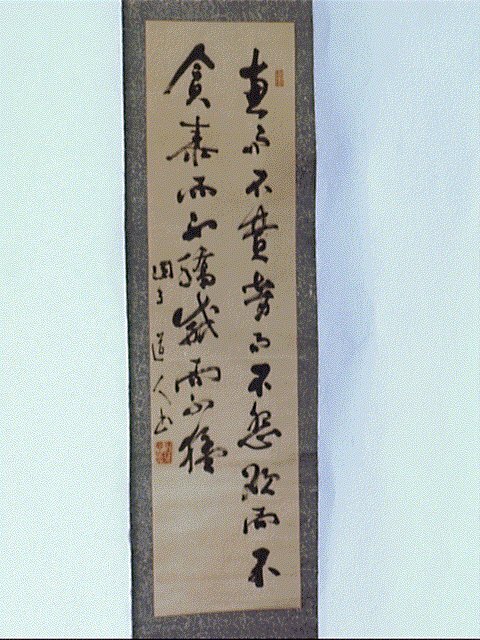 惠而不費勞而不怨欲而不
貪泰而不驕威而不猛
道人書